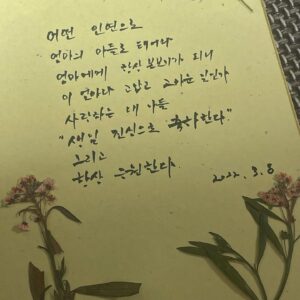 어떤 인연으로
엄마의 아들로 태어나
엄마에게 항상 봄보기가 되니
이 얼마나 고맙고 고마운 일인가
사랑하는 내 아들
"생일 진심으로 축하한다."
그리고
항상 응원한다.
2022. 3. 8